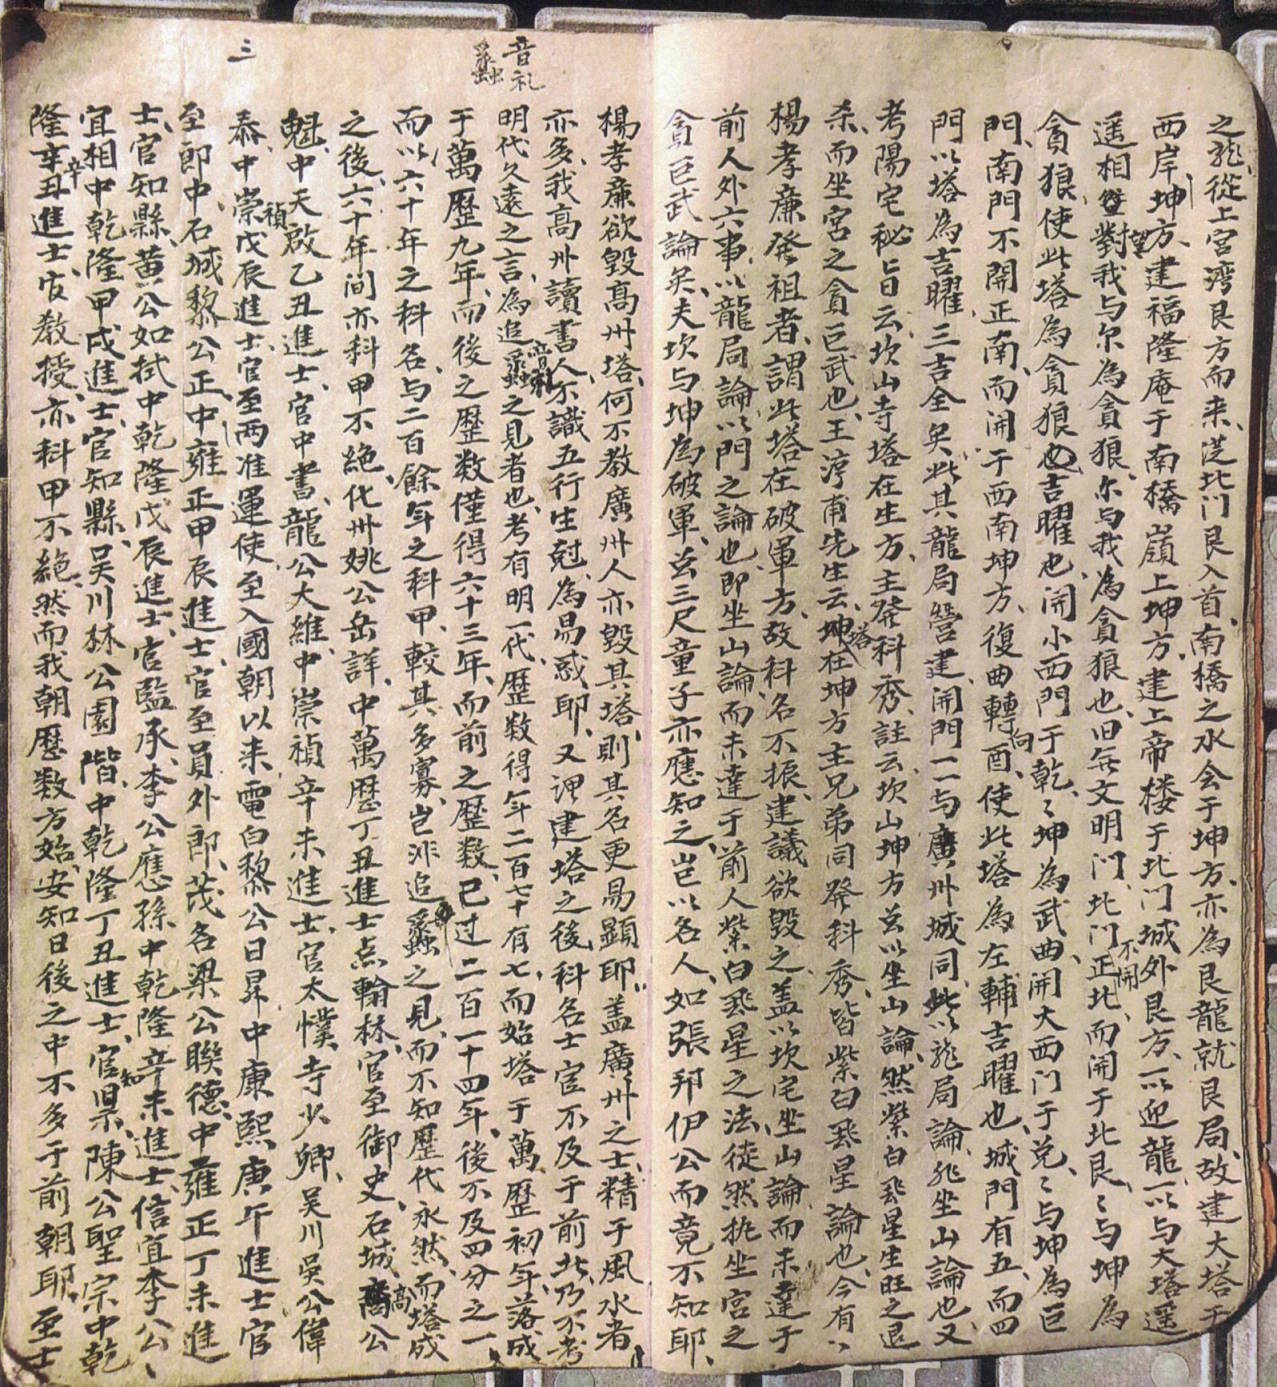 之龍從上宮湾艮方而来送北门艮入首南橋之水会于坤方亦為艮龍就艮局故建大塔于
西岸坤方建福隆庵于南橋嶺上坤方建上帝楼于北门城外艮方一以迎龍一以与大塔遥
遥相對望我与尔為貪狼尔与我為貪狼也旧无文明门北门不開正北而開于北艮〻与坤為
貪狼使此塔為貪狼也吉曜也開小西門于乾〻坤為武曲開大西门于兑〻与坤為巨
門南門不開正南而開于西南坤方復曲轉向酉使此塔為左輔吉曜也城門有五而四
門以塔為吉曜三吉全矣此其龍局營建開門一一与廣州城同此以龍局論非坐山論也又
考陽宅秘旨云坎山寺塔在生方主發科秀註云坎山坤方玄以坐山論然紫白飛星生旺之退
杀而坐宮之貪巨武也王淳甫先生云坤塔在坤方主兄弟同發科秀皆紫白飛星論也今有〻
楊孝廉發祖者謂此塔在破軍方故科名不振建議欲毀之盖以坎宅坐山論而未達于
前人外六事以龍局論以門之論也即坐山論而未達于前人紫白飛星之法徒然執坐宮之
貪巨武論矣夫坎与坤為破軍玄三尺童子亦應知之豈以名人如張邦伊公而竟不知耶
楊孝廉欲毀高州塔何不教廣州人亦毀其塔則其名更易顯耶盖廣州之士精于風水者
亦多我高州讀書人不識五行生尅為易惑耶又谓建塔之後科名士宦不及于前此乃不考
音礼
蠡
明代久遠之言為追蠡音礼之見者也考有明一代歷数得年二百七十有七而始塔于萬歷初年落成
于萬歷九年而後之歷数僅得六十三年而前之歷数已过二百一十四年後不及四分之一
而以六十年之科名与二百餘年之科甲較其多寡豈非追蠡之見而不知歷代永然而塔成
之後六十年间亦科甲不絶化州姚公岳詳中萬歷丁丑進士点翰林官至御史石城高公
魁中天啟乙丑進士官中書龍公大維中崇禎辛未進士官太僕寺少卿吴川吴公偉
三
泰中崇禎戊辰進士官至兩准運使至入國朝以来電白黎公日昇中康熙庚午進士官
至郎中石城黎公正中雍正甲辰進士官至員外郎茂名梁公聯德中雍正丁未進
士官知縣黄公如栻中乾隆戊辰進士官監承李公應孫中乾隆辛未進士信宜李公〻
宜相中乾隆甲戌進士官知縣吴川林公園階中乾隆丁丑進士官知县陳公聖宗中乾
隆辛丑進士官教授亦科甲不絶然而我朝歷数方始安知日後之中不多于前朝耶至士